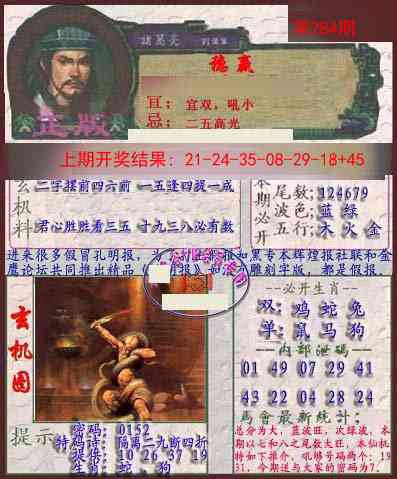 第284期
諸葛亮
劉謹軍
稳赢
宜：宜双，吼小
正版
忌：二五高光
上期开奖结果：21-24-35-08-29-18+45
玄机料
二字摆前四六前 一五逢四提一成
君心胜胜看三五 十九三八必有数
本期必开
尾数；124679
波色；蓝 绿
五行；木 火 金
进来很多假冒孔明报，为了打
都报如黑专本辉煌报社联和金
鹰论坛共同推出精品
如没有雕刻字版，都是假报.
玄机图
必开生肖
双：鸡 蛇 兔
单：鼠 马 狗
内部泄码
01 49 07 29 41
43 22 04 28 24
馬會最新統計：
总分为大，蓝波旺，次绿波，本
期以七和八之尾数大旺，本仙机
特如下推介，吼够号码两个：19
31，今期送与大家的密码为7.
提示
密码：0152
特码诗：隔离二九断四折
提供：10 26 37 19
生肖：蛇、狗